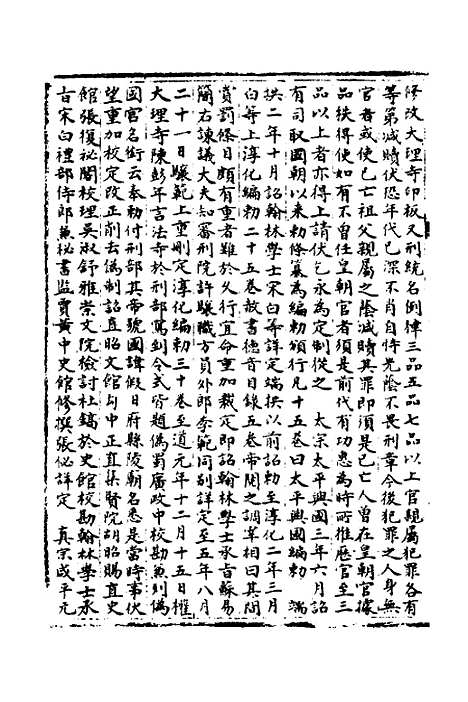 修改大理寺印板又刑統名例律三品五品七品以上官親屬犯罪各有
等第減贖伏恐年代已深不肖自恃先䕃不畏刑章今後犯罪之人身無
官者或使已亡祖父親屬之䕃減贖其罪即須是已亡人曾在皇朝官據
品秩得使如有不曾任皇朝官者須是前代有功惠為時所推歷官至三
品以上者亦得上請伏乞永為定制從之　太宗太平興國三年六月詔
有司取國朝以來敕條纂為編敕頒行凡十五卷曰太平興國編敕　端
拱二年十月詔翰林學士宋白等詳定端拱以前詔敕至淳化二年三月
白等上淳化編敕二十五卷赦書德音目錄五卷帝閱之謂宰相曰其間
賞罰條目頗有重者難於久行宜命重加裁定即詔翰林學士承旨蘇易
簡右諫議大夫知審刑院許驤職方員外郎李範同別詳定至五年八月
二十一日驤範上重刪定淳化編敕三十卷至道元年十二月十五日權
大理寺陳彭年言法寺於刑部寫到令式皆題偽蜀廣政中校勘兼列偽
國官名銜云奉敕付刑部其帝號國諱假日府縣陵廟名悉是當時事伏
望重加校定改正削去偽制詔直昭文館勾中正直集賢院胡昭賜直史
館張復祕閣校理吳淑舒雅崇文院檢討杜鎬於史館校勘翰林學士承
旨宋白禮部侍郎兼祕書監賈黃中史館修撰張佖詳定　真宗咸平元